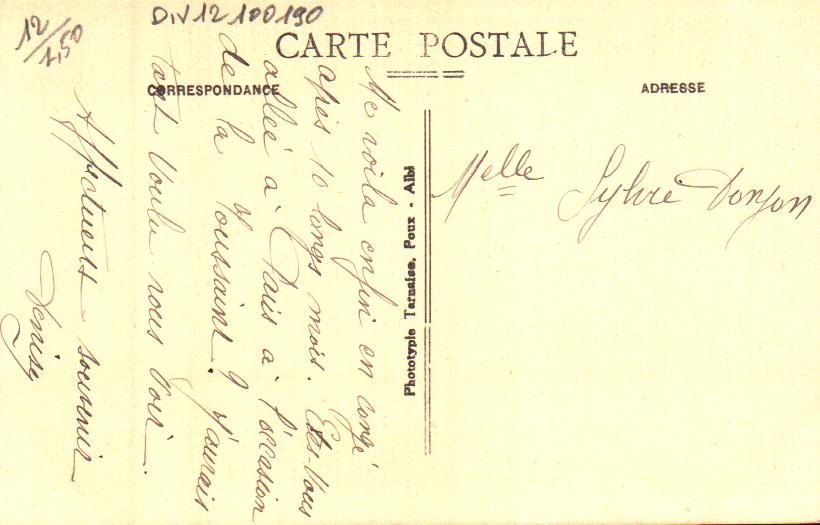 12/1,50
DIV12 100190
CARTE POSTALE
CORRESPONDANCE
ADRESSE
Me voila enfin en congé
après 10 longs mois. Etes-Vous
allée à Paris à l'occasion
de la Toussaint. J'aurais
tant Voulu vous Voir.
Affectueux souvenir
Denise
Phototypie Tarnaise, Poux - Albi
Melle Sylvie Donjon